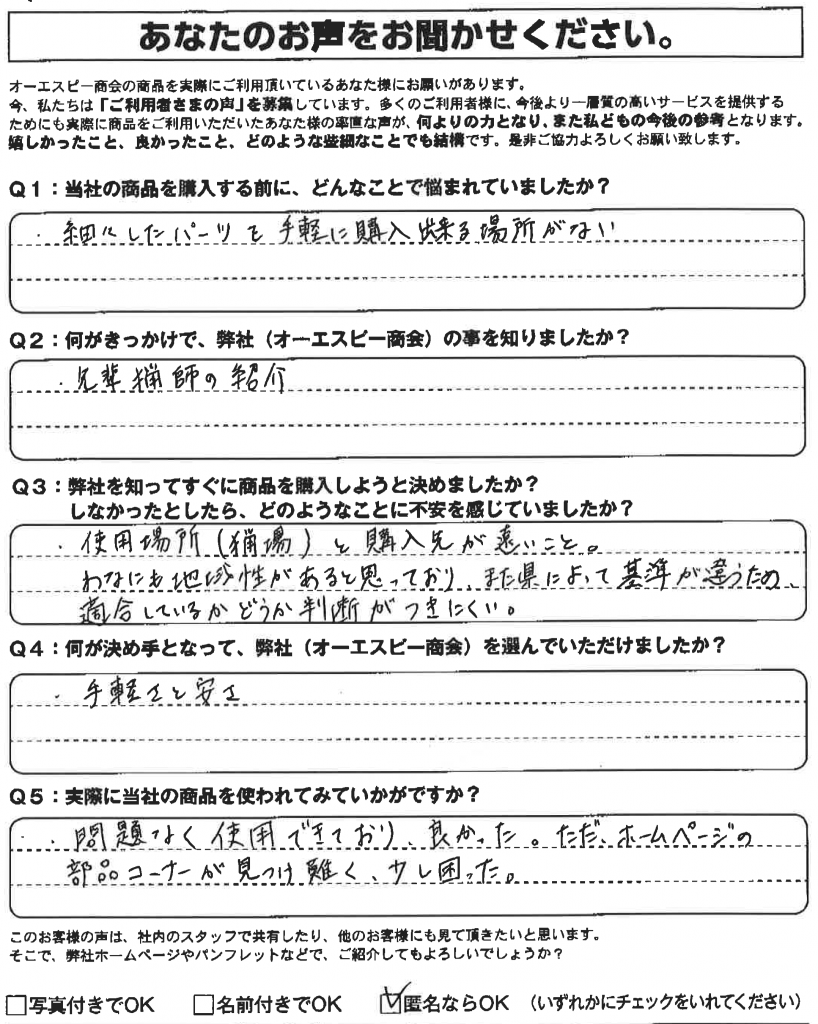 あなたのお声をお聞かせください。
オーエスピー商会の商品を実際にご利用頂いているあなた様にお願いがあります。
今、私たちは「ご利用者さまの声」を募集しています。多くのご利用者様に、今後より一層質の高いサービスを提供する
ためにも実際に商品をご利用いただいたあなた様の率直な声が、何よりの力となり、また私どもの今後の参考となります。
嬉しかったこと、良かったこと、どのような些細なことでも結構です。是非ご協力よろしくお願い致します。
Q1：当社の商品を購入する前に、どんなことで悩まれていましたか？
・細々したパーツを手軽に購入出来る場所がない
Q2：何がきっかけで、弊社（オーエスピー商会）の事を知りましたか？
・先輩猟師の紹介
Q3：弊社を知ってすぐに商品を購入しようと決めましたか？
しなかったとしたら、どのようなことに不安を感じていましたか？
・使用場所（猟場）と購入先が遠いこと。
わなにも地域性があると思っており、また県によって基準が違うため、
適合しているかどうか判断がつきにくい。
Q4：何が決め手となって、弊社（オーエスピー商会）を選んでいただけましたか？
・手軽さと安さ
Q5：実際に当社の商品を使われてみていかがですか？
・問題なく使用できており、良かった。ただ、ホームページの
部品コーナーが見つけ難く、少し困った。
このお客様の声は、社内のスタッフで共有したり、他のお客様にも見て頂きたいと思います。
そこで、弊社ホームページやパンフレットなどで、ご紹介してもよろしいでしょうか？
□写真付きでOK □名前付きでOK ☑匿名ならOK （いずれかにチェックをいれてください）